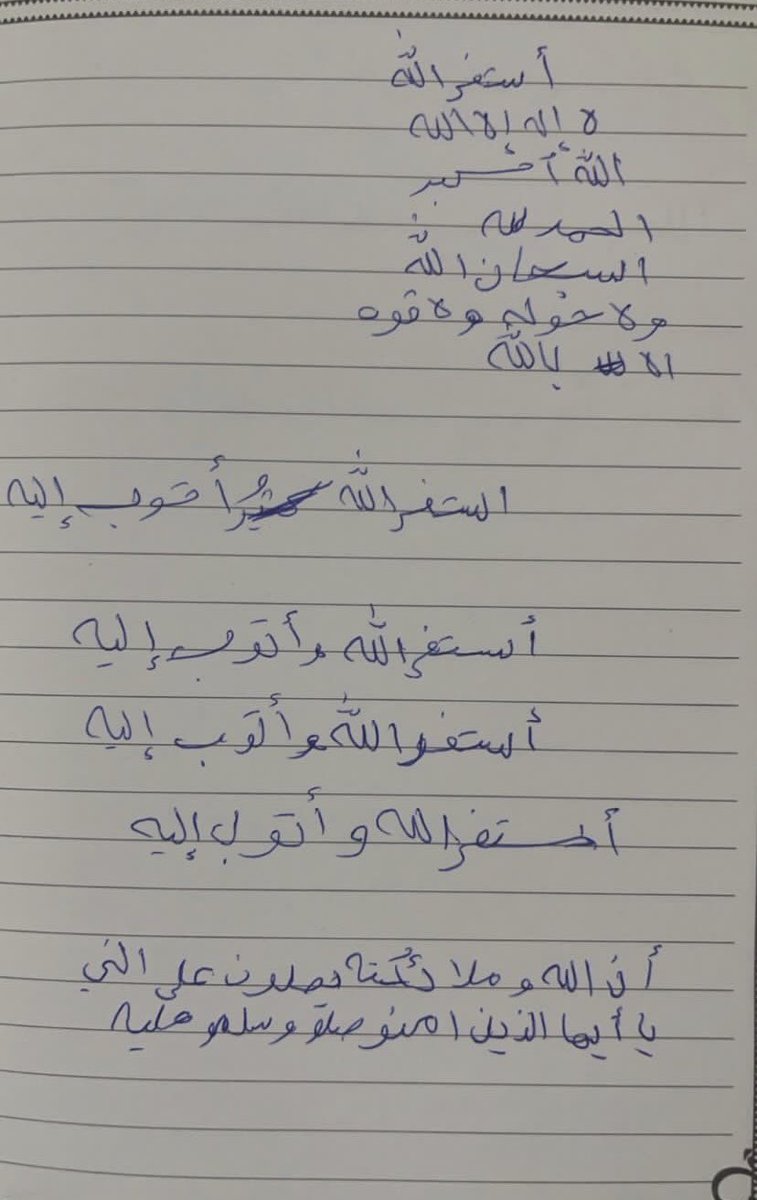 أستغفر الله
لا اله إلا الله
الله أكبر
الحمد لله
السبحان الله
ولا حوله ولا قوه
الا بالله
استغفر الله أتوب إليه
أستغفر الله وأتوب إليه
أستغفر الله وأتوب إليه
أستغفر الله وأتوب إليه
أن الله و ملائكته يصلون على النبي
يا أيها الذين امنو صلو وسلمو عليه